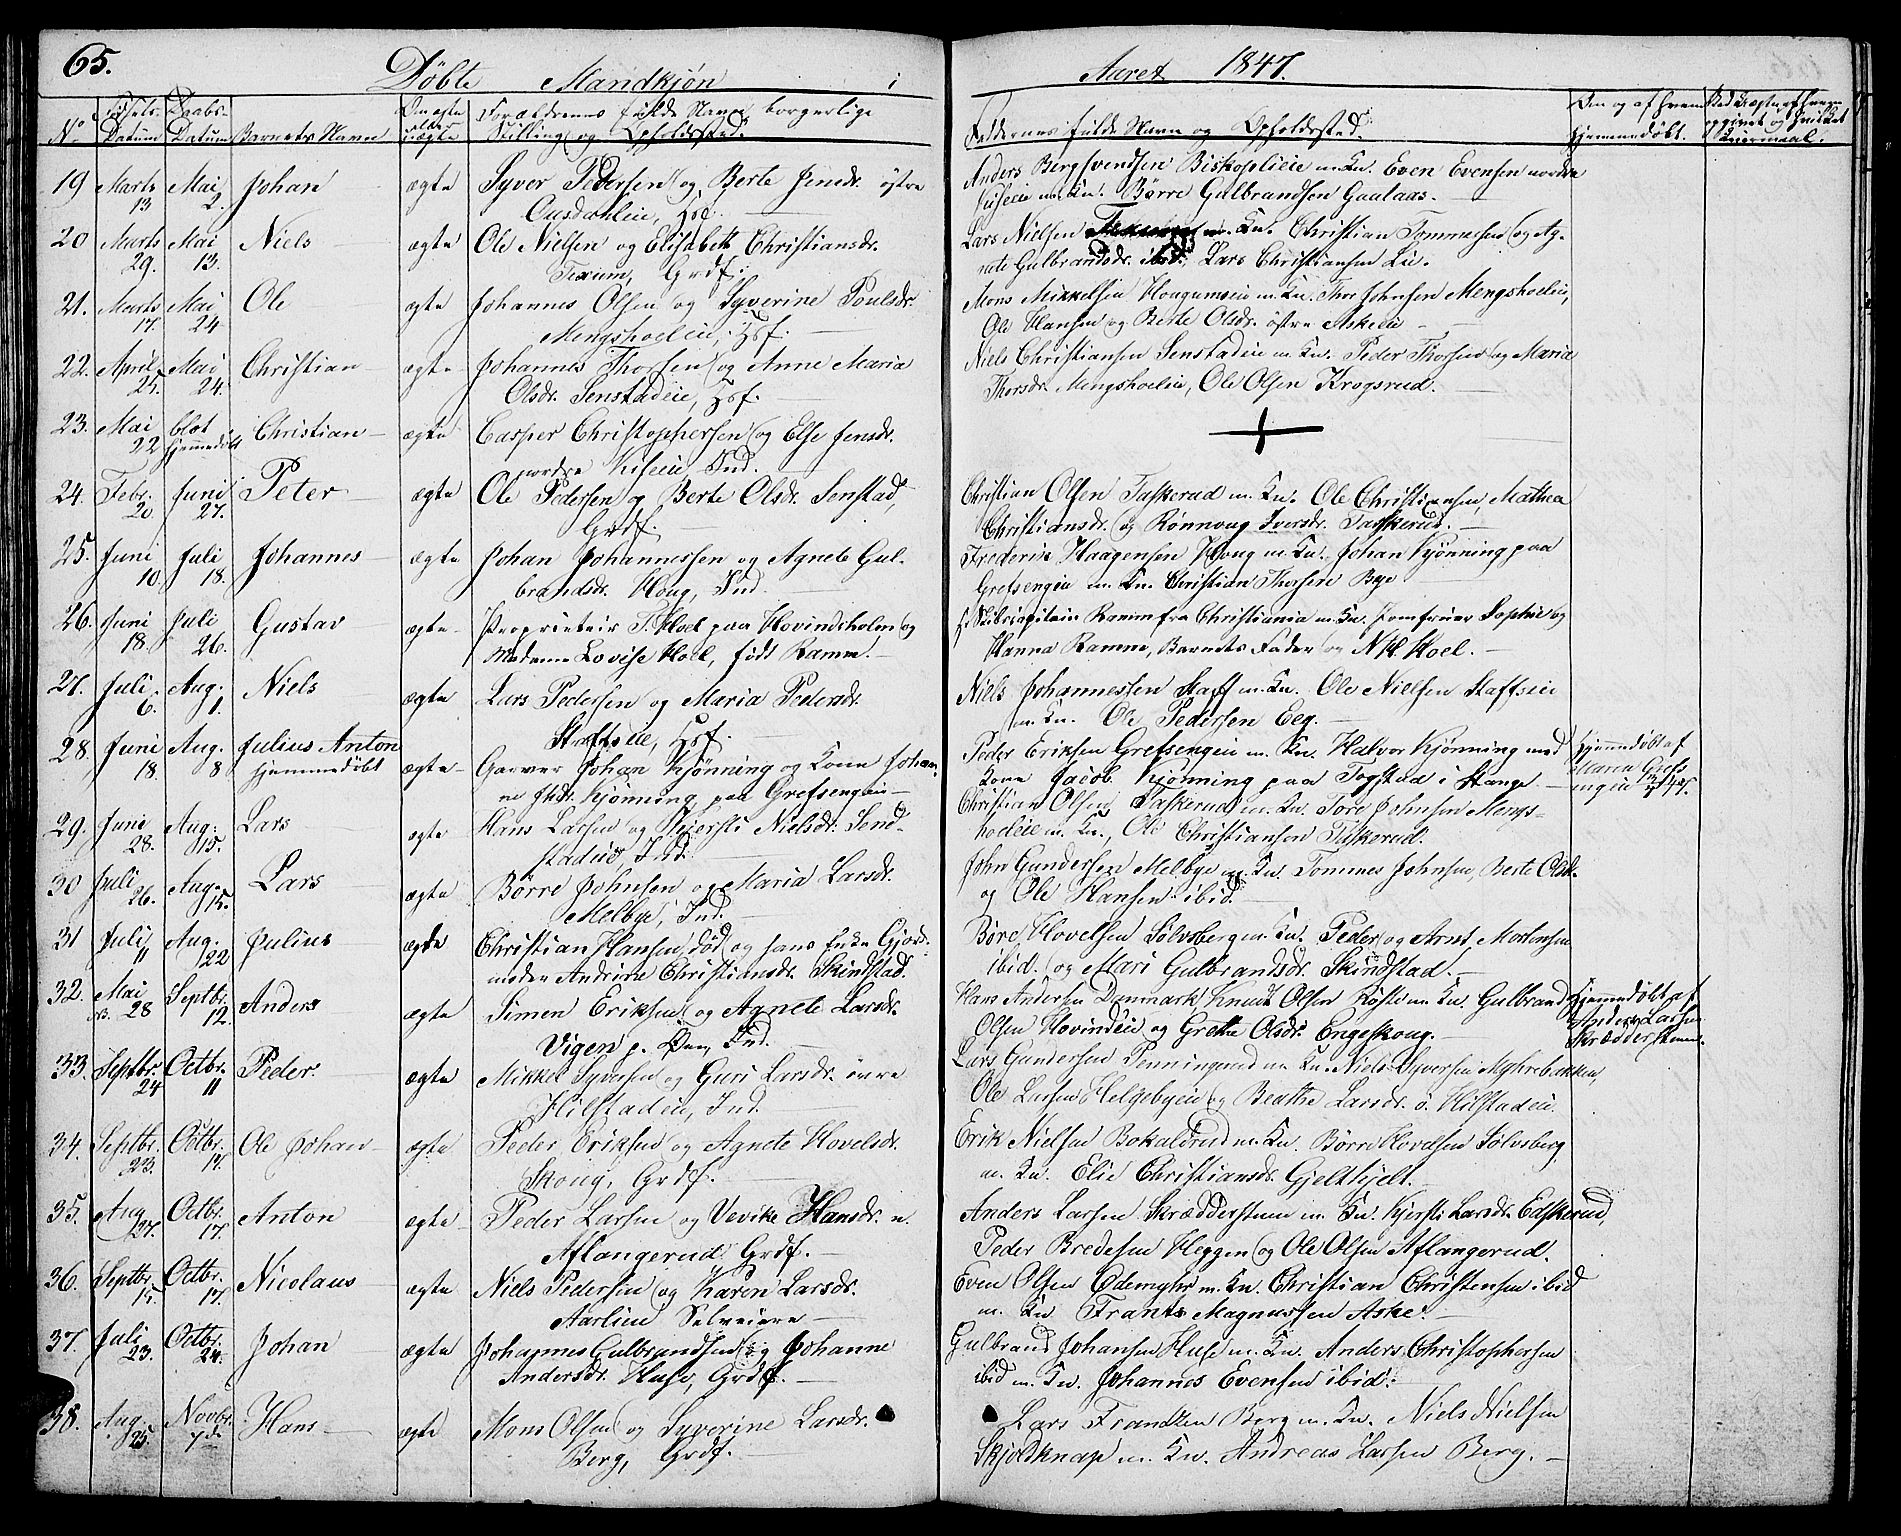 65.
Døbte Mandkjøn i
Aaret 1847.
No Fødsels-Datum Daabs-Datum Barnets Navn Om ægte eller uægte Forældrenes fulde Navn, borgerlige Stilling og Opholdssted.
Faddernes fulde Navn og Opholdssted. Om og af hvem hjemmedøbt.
19 Marts 13 Mai 2. Johan ægte Syver Pedersen og Berte Jensdr. østre
Ousdahleie, Hsf.
Anders Bergsvendsen Biskoplieie m. Kn. Even Evensen nordre
Kiseeie m. Kn. Børre Gulbrandsen Gaalaas.
20 Marts 29. Mai 13. Niels ægte Ole Nielsen og Elisabeth Christiansdr.
Texum, Grdf.
Lars Nielsen m. Kn. Christian Tommesen og Ag-
nete Gulbrandsdr. ibid., Lars Christiansen Lie.
21. Marts 17. Mai 24 Ole ægte Johannes Olsen og Syverine Poulsdr.
Mengshoeleie, Hsf.
Mons Mikkelsen Hougumseie m. Kn. Thor Johnsen Mengshoeleie,
Ole Hansen og Berte Olsdr. østre Askeeie
22. April 25. Mai 24. Christian ægte Johannes Thorsen og Anne Maria
Olsdr. Senstadeie, Hsf.
Niels Christiansen Senstadeie m. Kn. Peder Thorsen og Maria
Thorsdr. Mengshoeleie, Ole Olsen Krogsrud.
23. Mai 22 blot hjemmedøbt Christian ægte Casper Christophersen og Else Jensdr.
nordre Kiseeie, Ind.
24. Febr. 20. Juni 27. Peter ægte Ole Pedersen og Berte Olsdr. Senstad,
Grdf.
Christian Olsen Taskerud m. Kn. Ole Christiansen, Mathea
Christiansdr. og Rønnoug Iversdr. Taskerud.
25. Juni 10. Juli 18. Johannes ægte Johan Johannessen og Agnete Gul-
brandsdr. Houg, Ind.
Frederik Haagensen Houg m. Kn. Johan Kjønning paa
Grefsengeie m. Kn. Christian Thorsen Bye
26. Juni 18. Juli 26. Gustav ægte Proprietair T. Hoel paa Hovindsholm og
Madame Lovise Hoel, født Ramm.
Hr. Ramm fra Christiania m. Kn. Jomfruer Sophie og
Hanna Ramm, Barnets Fader og N. H. Hoel.
27. Juli 6. Aug. 1. Niels ægte Lars Pedersen og Maria Pedersdr.
Stafseie, Hsf.
Niels Johannessen Staff m. Kn. Ole Nielsen Stafseie
m. Kn. Ole Pedersen Eeg.
28. Juni 18. Aug. 8 Julius Anton hjemmedøbt ægte Garver Johan Kjønning og Kone Johan-
ne Kjønning paa Grefsengeie
Peder Eriksen Grefsengeie m. Kn. Halvor Kjønning med
Kone Jacob Kjønning paa Togstad i Stange
Hjemmedøbt af
Maren Grefs-
engeie
29. Juni 28. Aug. 15. Lars ægte Hans Larsen og Kjersti Nielsdr. Send-
stadeie, Ind.
Christian Olsen Taskerud m. Kn. Tore Johnsen Mengs-
hoeleie m. Kn., Ole Christiansen Taskerud.
30 Juli 26. Aug. 15. Lars ægte Børre Johnsen og Maria Larsdr.
Melbye, Ind.
John Gundersen Melbye m. Kn. Tommes Johnsen, Berte Olsdr.
og Ole Hansen ibid.
31 Juli 11 Aug. 22 Julius ægte Christian Hansen, død og hans Enke Gjord-
moder Andrine Christiansdr. Skindstad.
Børe Hovelsen Sølvsberg m. Kn. Peder og Arnt Mortensen
ibid. og Mari Gulbrandsdr. Skindstad.
32. Mai 28 Septbr. 12. Anders ægte Simen Eriksen og Agnete Larsdr.
Vigen p. Øen, Ind.
Hans Andersen Danmark Knudt Olsen Røste m. Kn. Gulbrand
Olsen Hovindeie og Grethe Olsdr. Engeskoug.
Hjemmedøbt af
Anders Larsen
Skrædderstuen.
33. Septbr. 24 Octbr. 11 Peder ægte Mikkel Syversen og Guri Larsdr. øvre
Hilstadeie, Ind.
Lars Gundersen Penningrud m. Kn. Niels Syversen Myhrebakken,
Ole Larsen Helgebyeie og Beathe Larsdr. ø. Hilstadeie.
34. Septbr. 23. Octbr. 17. Ole Johan ægte Peder Eriksen og Agnete Hovelsdr.
Skoug, Grdf.
Erik Nielsen Bokaldrud m. Kn. Børre Hovelsen Sølvsberg
m. Kn. Elie Christiansdr. Gjeltsjelt.
35. Aug 27. Octbr. 17. Anton ægte Peder Larsen og Vevike Hansdr. n.
Aflangerud Grdf.
Anders Larsen Skrædderstuen m. Kn. Kjersti Larsdr. Edskerud,
Peder Bredesen Heggen og Ole Olsen Aflangerud.
36. Septbr. 15. Octbr. 17. Nicolaus ægte Niels Pedersen og Karen Larsdr.
Aarlien Selveiere
Even Olsen Edemyhr m. Kn. Christian Christensen ibid
m. Kn Frants Magnussen Aske.
37. Juli 23. Octbr. 24. Johan ægte Johannes Gulbrandsen og Johanne
Andersdr. Huse, Grdf.
Gulbrand Johansen Huse m. Kn. Anders Christophersen
ibid m. Kn. Johannes Evensen ibid.
38. Aug. 25. Novbr. 7de Hans ægte Mons Olsen og Syverine Larsdr.
Berg, Grdf.
Lars Frandzen Berg m. Kn. Niels Nielsen
Skjoldknap m. Kn. Andreas Larsen Berg.